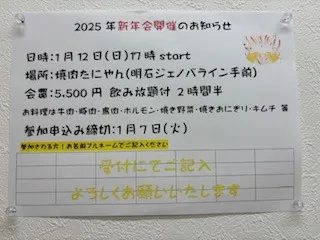 2025年新年会開催のお知らせ
日時:1月12日(日)17時start
場所:焼肉たにやん(明石ジェノバライン手前)
会費:5,500円 飲み放題付 2時間半
お料理は牛肉・豚肉・鳥肉・ホルモン・焼き野菜・焼きおにぎり・キムチ 等
参加申込み締切:1月7日(火)
参加される方!お名前フルネームでご記入ください
受付にてご記入
よろしくお願いいたします